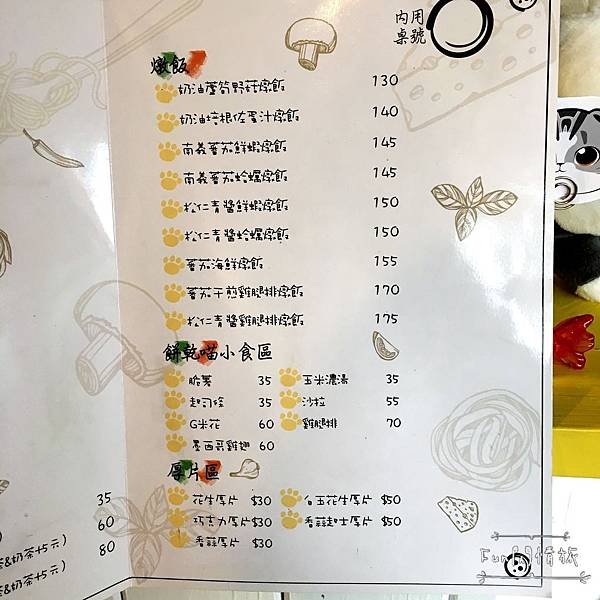 內用
桌號
燉飯
奶油蘆筍野菇燉飯 130
奶油培根佐蛋汁燉飯 140
南義蕃茄鮮蝦燉飯 145
南義蕃茄蛤蠣燉飯 145
松仁青醬鮮蝦燉飯 150
松仁青醬蛤蠣燉飯 150
蕃茄海鮮燉飯 155
蕃茄干煎雞腿排燉飯 170
松仁青醬雞腿排燉飯 175
餅乾喵小食區
脆薯 35 玉米濃湯 35
起司條 35 沙拉 55
G米花 60 雞腿排 70
墨西哥雞翅 60
厚片區
花生厚片 $30 白玉花生厚片 $50
巧克力厚片 $30 香蒜起士厚片 $50
香蒜厚片 $30
35
60
&奶茶+5元)
80
&奶茶+5元)
Fun閃情旅